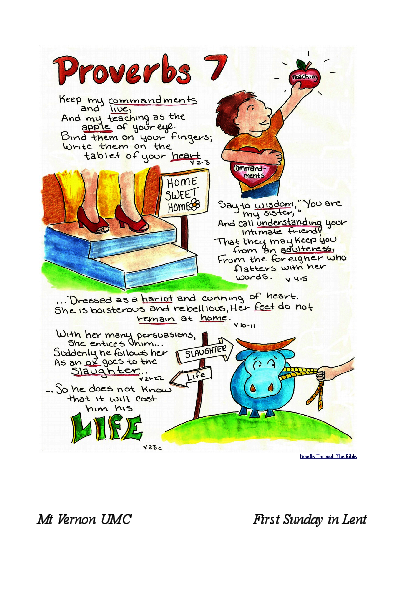 Proverbs 7
Keep my commandments
and live;
And my teaching as the
apple of your eye.
Bind them on your fingers;
Write them on the
tablet of your heart
v 2-3
Teaching
Command-
ments
HOME
SWEET
HOME
Say to wisdom, "You are
my sister,"
And call understanding your
intimate friend;
That they may keep you
from an adulteress,
From the foreigner who
flatters with her
words. v 4-5
...Dressed as a harlot and cunning of heart.
She is boisterous and rebellious, Her feet do not
remain at home.
v 10-11
With her many persuasions,
She entices him...
Suddenly he follows her
As an ox goes to the
Slaughter...
v 21-22
SLAUGHTER
Life
...So he does not know
that it will cost
him his
LIFE
v 23c
Mt Vernon UMC
First Sunday in Lent